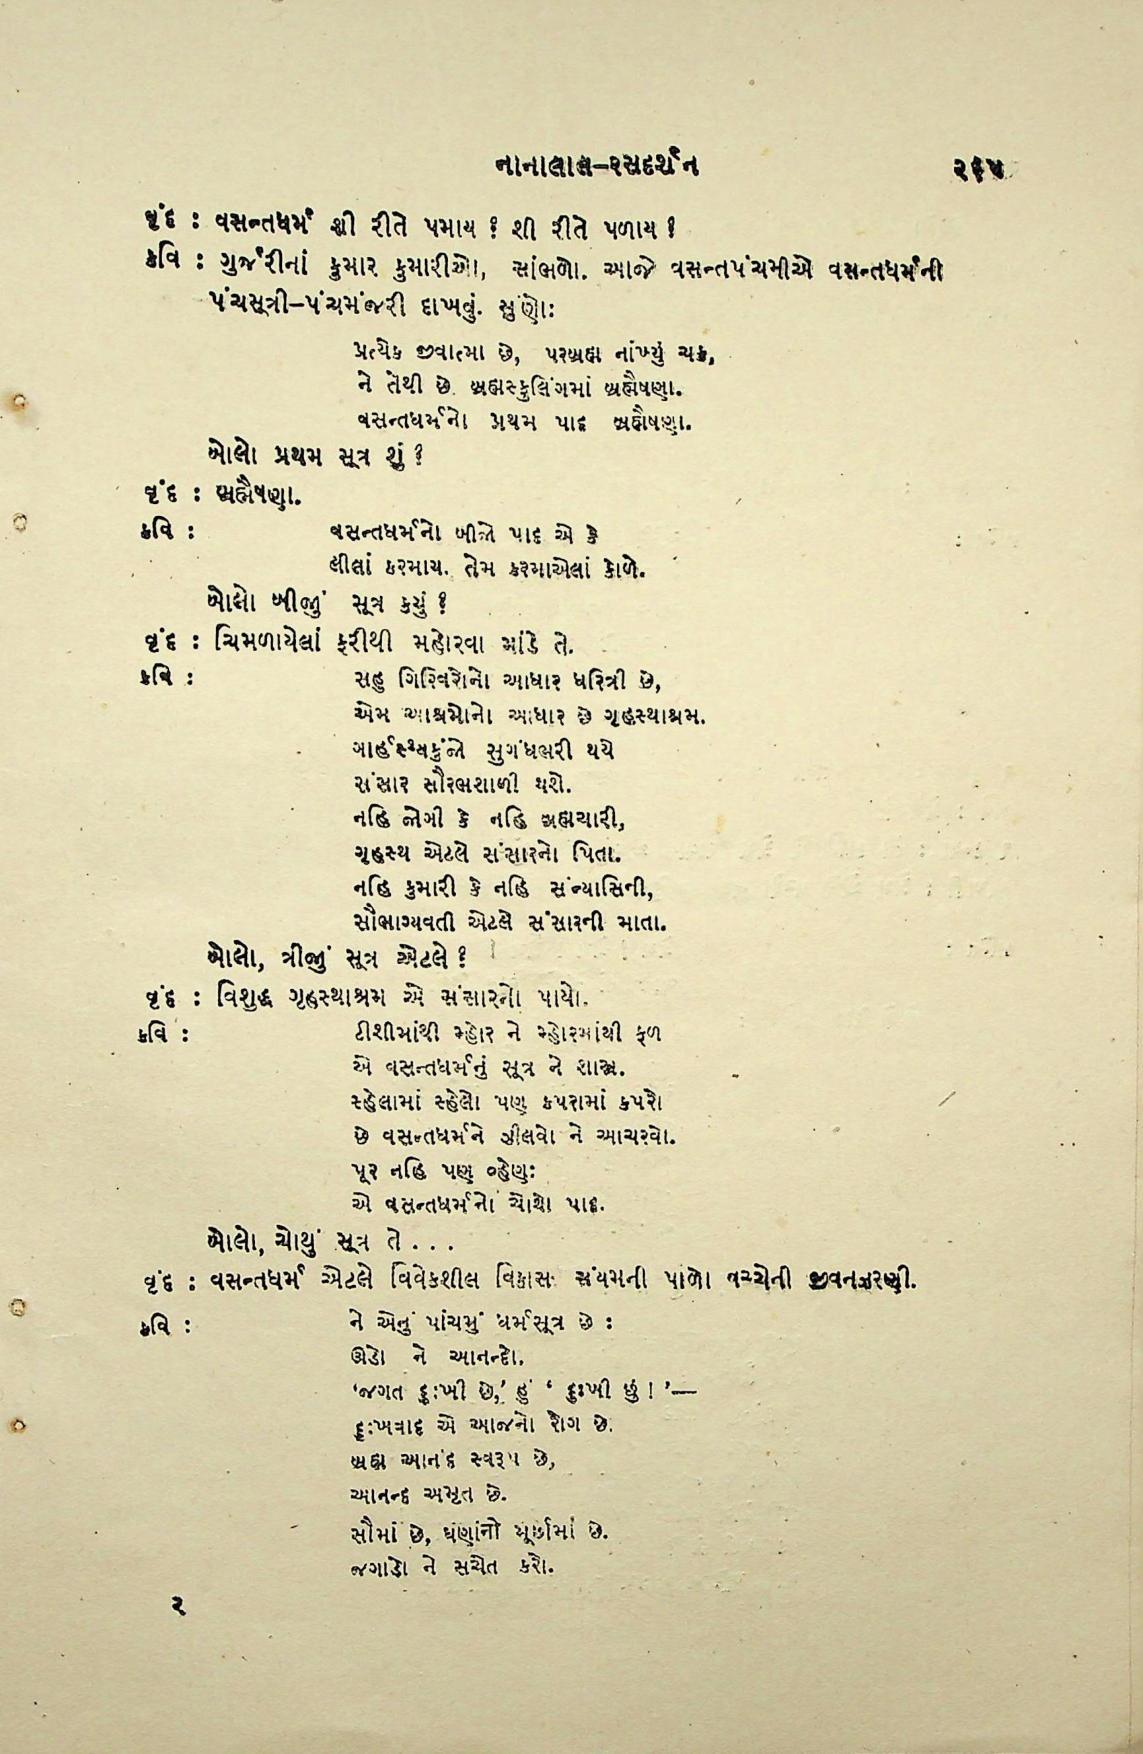 નાનાલાલ–રસદર્શન ૨૬૫
વૃંદ : વસન્તધર્મ શી રીતે પમાય ? શી રીતે પળાય ?
કવિ : ગુર્જરીનાં કુમાર કુમારીઓ, સાંભળો. આજે વસન્તપંચમીએ વસન્તધર્મની
પંચસૂત્રી–પંચમંજરી દાખવું. સુણો:
પ્રત્યેક જીવાત્મા છે, પરબ્રહ્મ નાંખ્યું ચક્ર,
ને તેથી છે બ્રહ્મસ્ફુલિંગમાં બ્રહ્મૈષણા.
વસન્તધર્મનો પ્રથમ પાદ બ્રહ્મૈષણા.
બોલો પ્રથમ સૂત્ર શું ?
વૃંદ : બ્રહ્મૈષણા.
કવિ : વસન્તધર્મનો બીજો પાદ એ કે
લીલાં કરમાય. તેમ કરમાએલાં કોળે.
બોલો બીજું સૂત્ર કયું ?
વૃંદ : ચિમળાયેલાં ફરીથી મહોરવા માંડે તે.
કવિ : સહુ ગિરિવરોનો આધાર ધરિત્રી છે,
એમ આશ્રમોનો આધાર છે ગૃહસ્થાશ્રમ.
ગાર્હસ્થ્યકુંજો સુગંધભરી થયે
સંસાર સૌરભશાળી થશે.
નહિ જોગી કે નહિ બ્રહ્મચારી,
ગૃહસ્થ એટલે સંસારનો પિતા.
નહિ કુમારી કે નહિ સંન્યાસિની,
સૌભાગ્યવતી એટલે સંસારની માતા.
બોલો, ત્રીજું સૂત્ર એટલે ?
વૃંદ : વિશુદ્ધ ગૃહસ્થાશ્રમ એ સંસારનો પાયો.
કવિ : ટીશીમાંથી મ્હોર ને મ્હોરમાંથી ફળ
એ વસન્તધર્મનું સૂત્ર ને શાસ્ત્ર.
સ્હેલામાં સ્હેલો પણ કપરામાં કપરો
છે વસન્તધર્મને ઝીલવો ને આચરવો.
પૂર નહિ પણ વ્હેણ:
એ વસન્તધર્મનો ચોથો પાદ.
બોલો, ચોથું સૂત્ર તે . . .
વૃંદ : વસન્તધર્મ એટલે વિવેકશીલ વિકાસ: સંયમની પાળો વચ્ચેની જીવનઝરણી.
કવિ : ને એનું પાંચમું ધર્મસૂત્ર છે :
ઊડો ને આનન્દો.
‘જગત દુ:ખી છે,’ હું ‘ દુઃખી છું ! ’—
દુ:ખવાદ એ આજનો રોગ છે.
બ્રહ્મ આનંદ સ્વરૂપ છે,
આનન્દ અમૃત છે.
સૌમાં છે, ઘણાંનો મૂર્છામાં છે.
જગાડો ને સચેત કરો.
૨